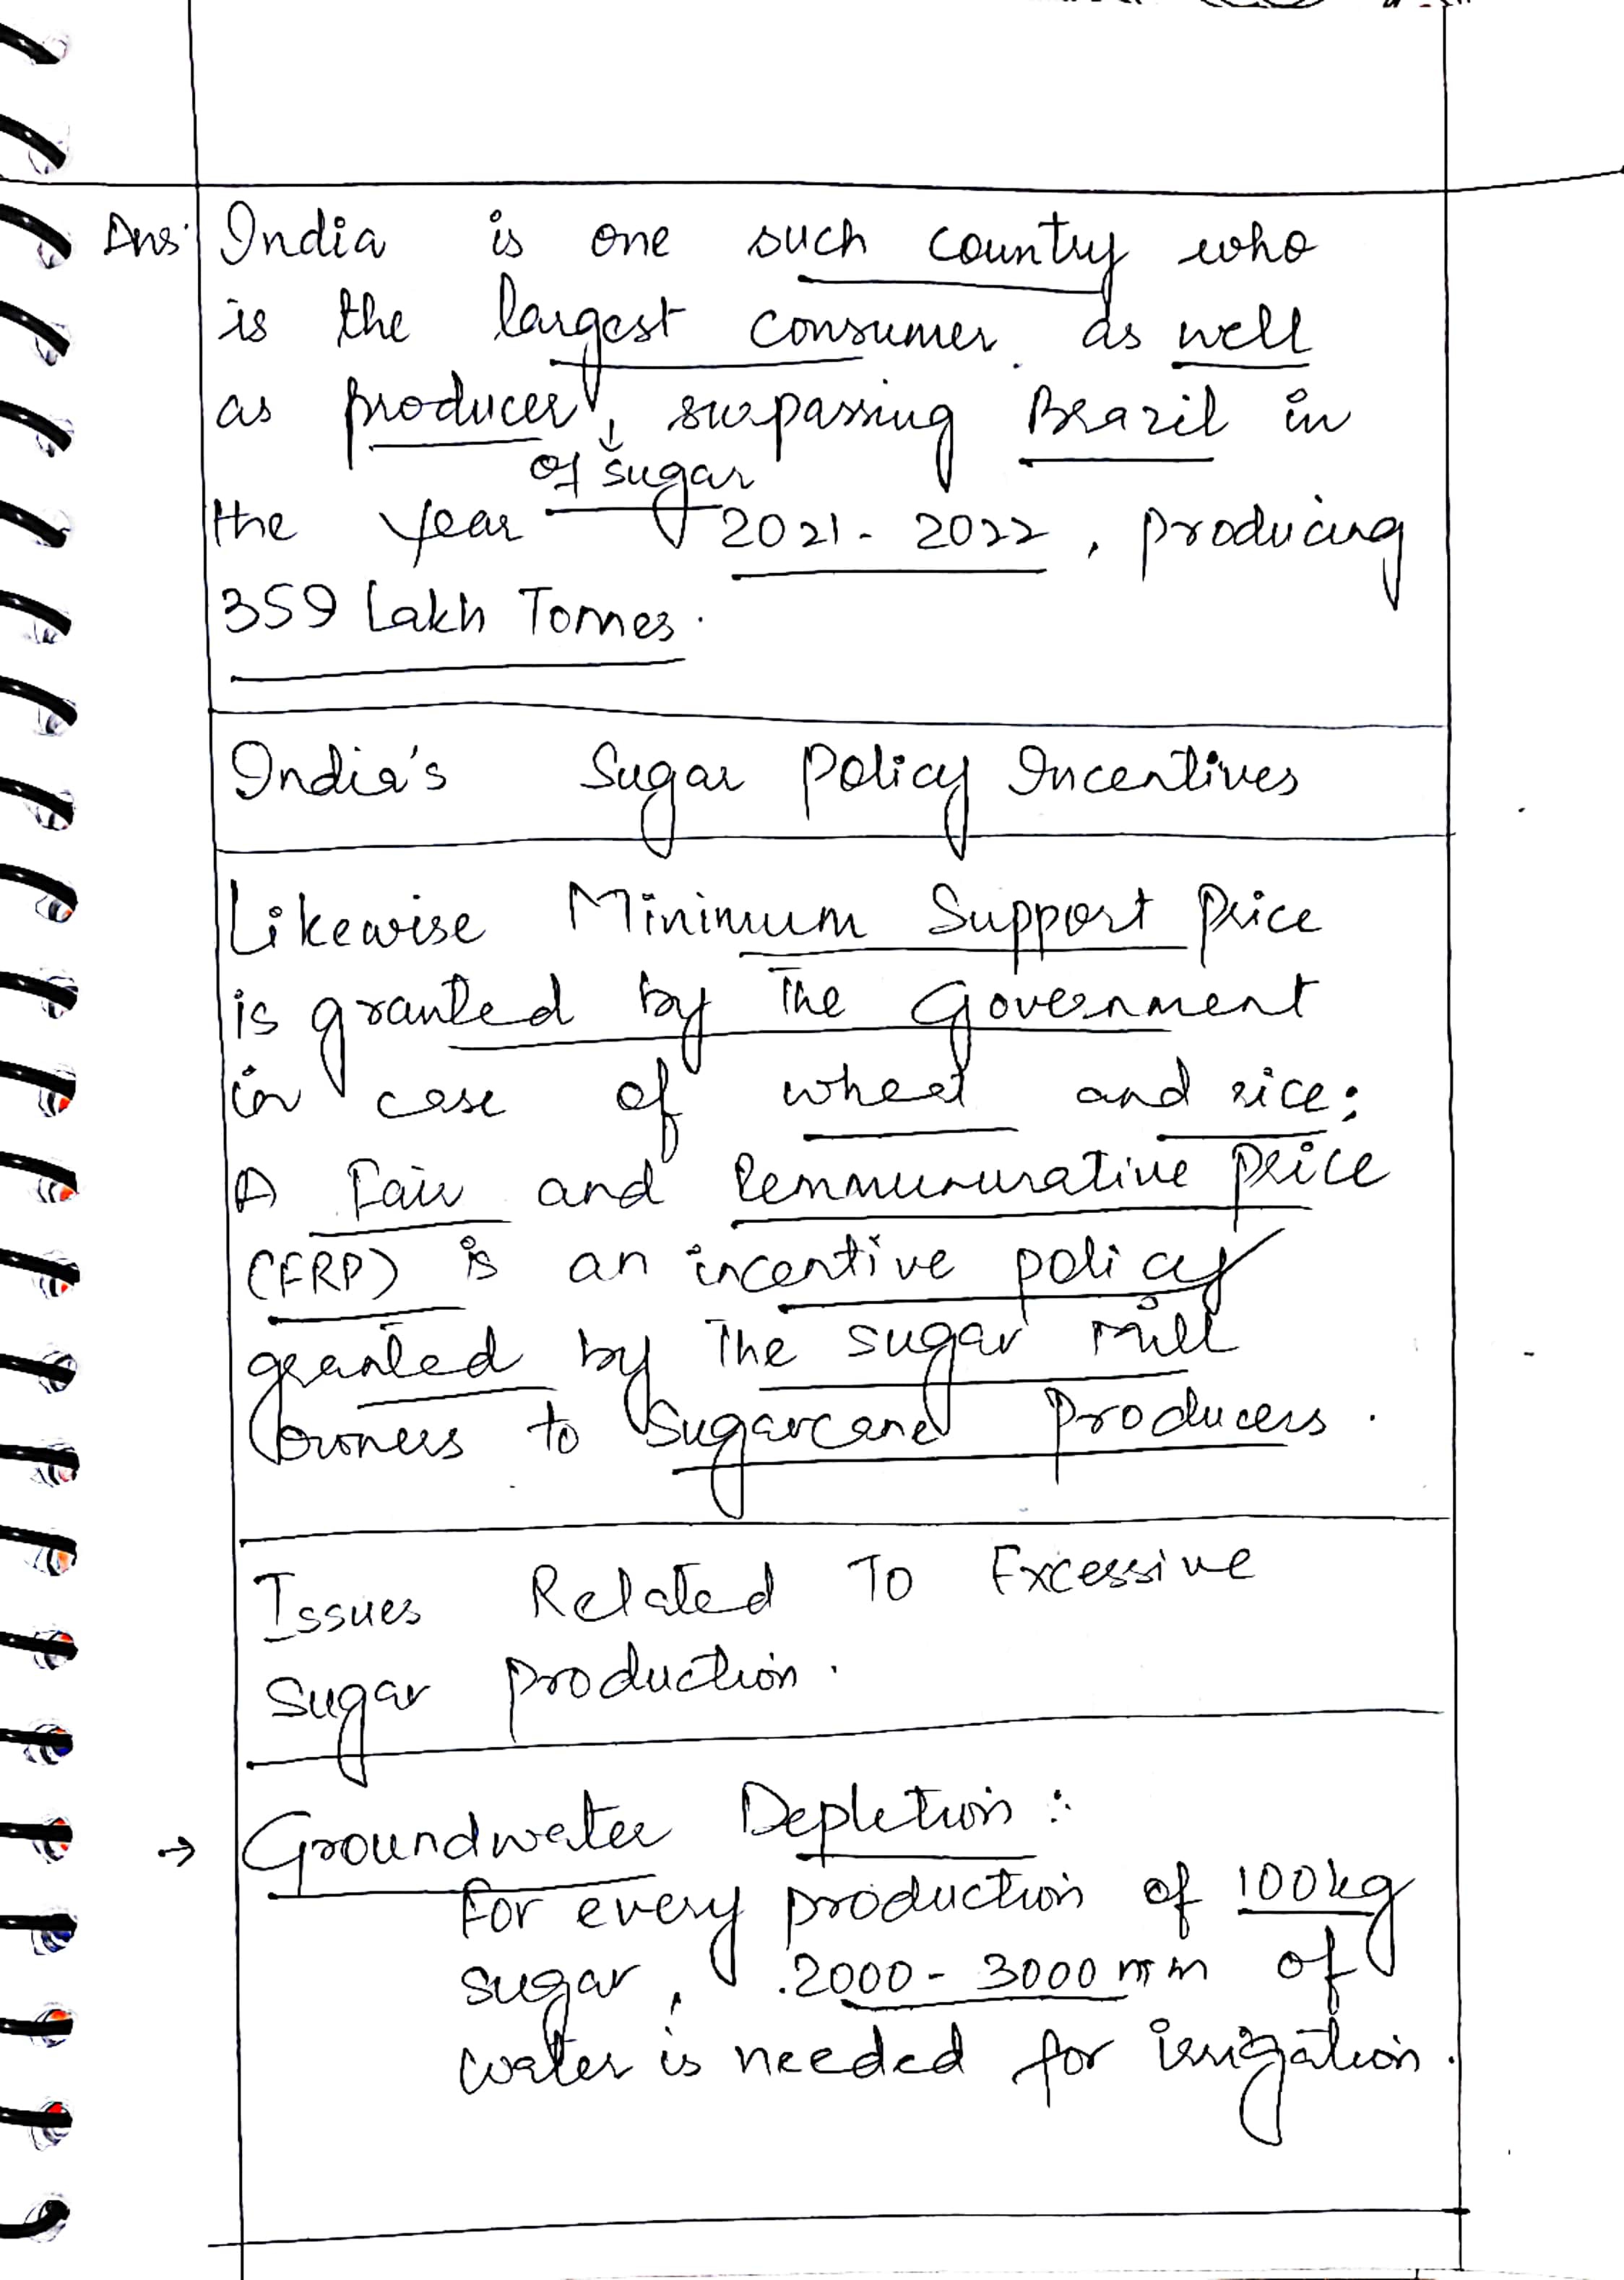 Ans: India is one such country who
is the largest consumer as well
as producer, surpassing Brazil in
of sugar
the year 2021-2022, producing
359 Lakh Tonnes.
India's Sugar Policy Incentives
Likewise Minimum Support Price
is granted by the Government
in case of wheat and rice;
A Fair and Remmururative Price
(FRP) is an incentive policy
granted by the sugar mill
owners to Sugarcane Producers.
Issues Related To Excessive
Sugar Production.
→ Groundwater Depletion:
For every production of 100kg
sugar, 2000-3000mm of
water is needed for irrigation.